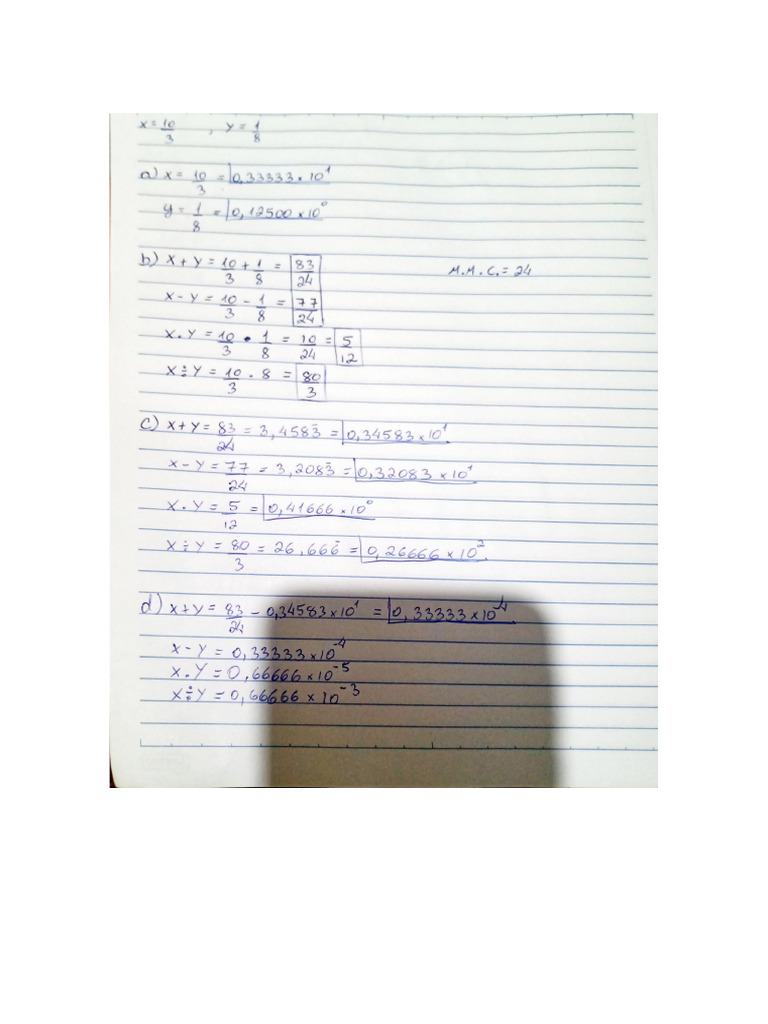 x = 10/3 , y = 1/8
a) x = 10/3 = 0,33333 x 10¹
y = 1/8 = 0,12500 x 10⁰
b) x + y = 10/3 + 1/8 = 83/24 M.M.C. = 24
x - y = 10/3 - 1/8 = 77/24
x . y = 10/3 • 1/8 = 10/24 = 5/12
x ÷ y = 10/3 . 8 = 80/3
c) x + y = 83/24 = 3,4583̄ = 0,34583 x 10¹
x - y = 77/24 = 3,2083̄ = 0,32083 x 10¹
x . y = 5/12 = 0,41666 x 10⁰
x ÷ y = 80/3 = 26,666̄ = 0,26666 x 10².
d) x + y = 83/24 - 0,34583 x 10¹ = 0,33333 x 10⁻⁴.
x - y = 0,33333 x 10⁻⁴
x . y = 0,66666 x 10⁻⁵
x ÷ y = 0,66666 x 10⁻³